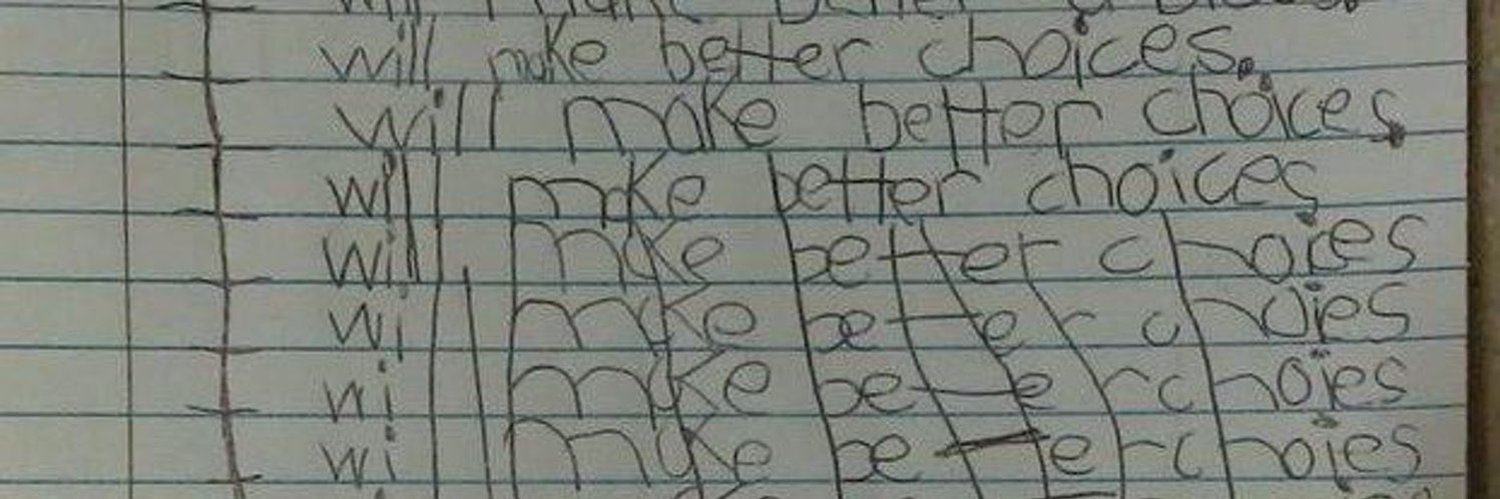 I will make better choices.
I will make better choices.
I will make better choices.
I will make better choices
I will make better choies
I will make better choies
I will make better choies
I will make better choies